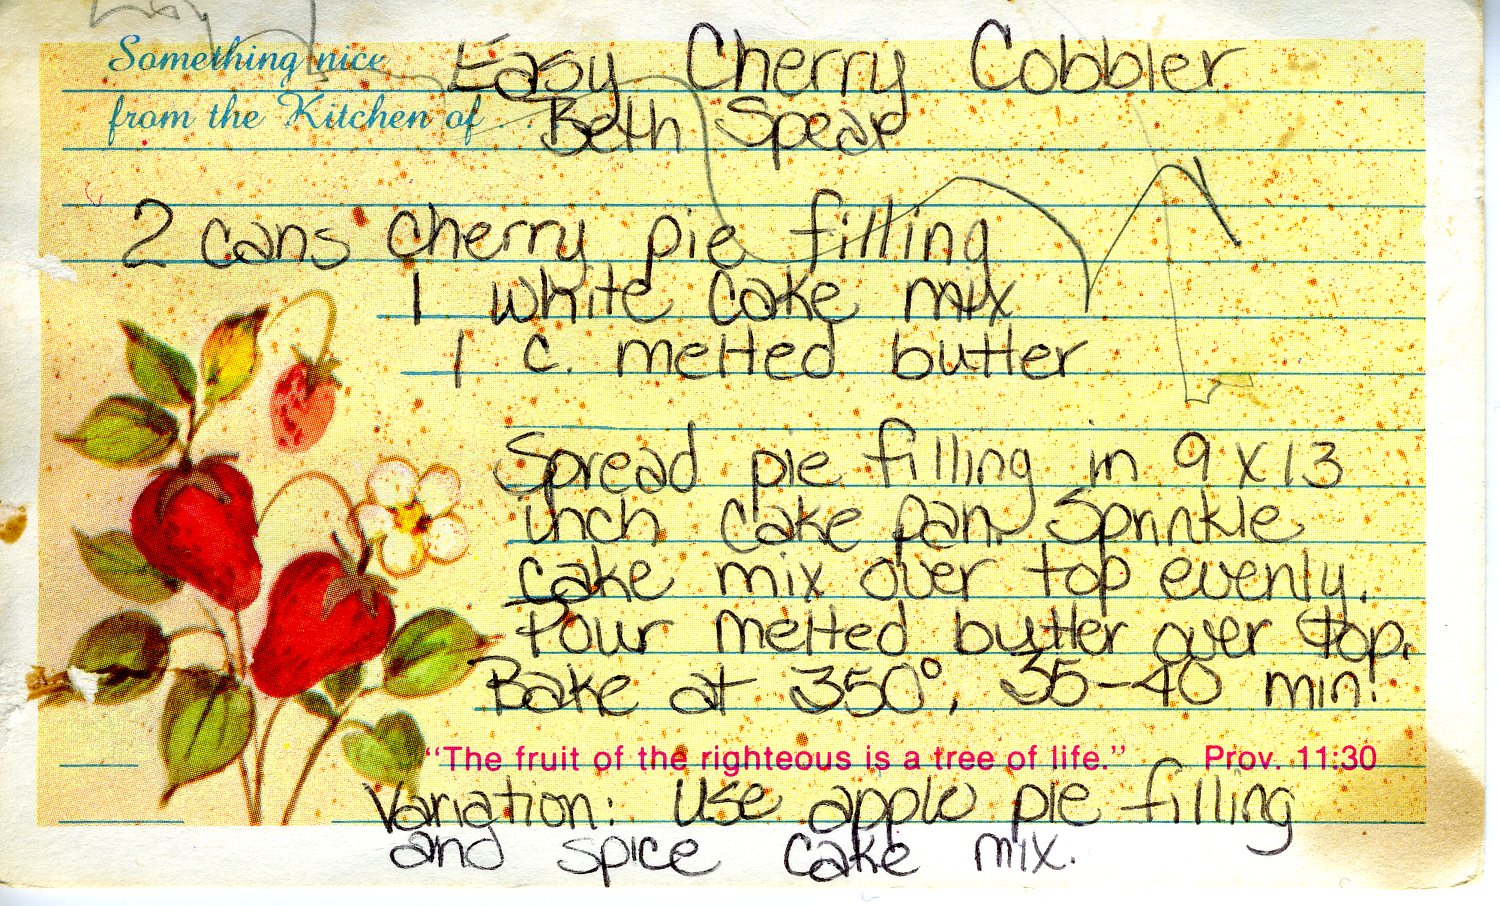 Something nice
Easy Cherry Cobbler
from the Kitchen of . . . Beth Spear
2 cans cherry pie filling
1 white cake mix
1 c. melted butter
Spread pie filling in 9 x 13
inch cake pan. Sprinkle
cake mix over top evenly.
Pour melted butter over top.
Bake at 350°, 35-40 min.
"The fruit of the righteous is a tree of life." Prov. 11:30
Variation: Use apple pie filling
and spice cake mix.